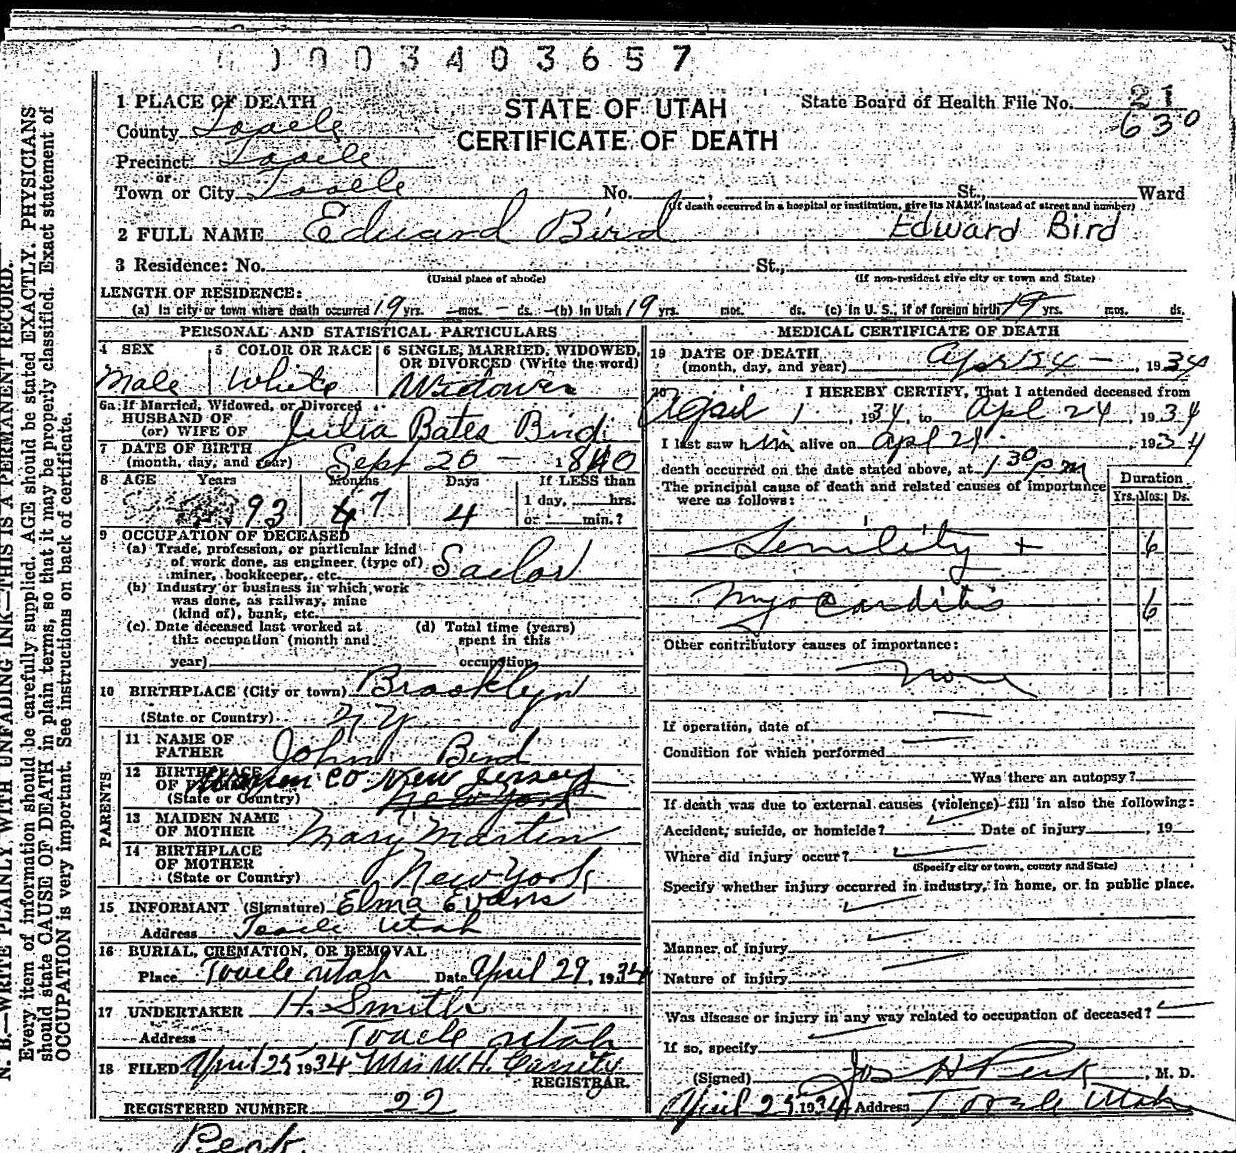 0003403657
1 PLACE OF DEATH
STATE OF UTAH
CERTIFICATE OF DEATH
State Board of Health File No. 21
630
County Tooele
Precinct Tooele
or
Town or City Tooele No. St., Ward
(If death occurred in a hospital or institution, give its NAME instead of street and number)
2 FULL NAME Edward Bird Edward Bird
3 Residence: No. St.,
(Usual place of abode) (If non-resident give city or town and State)
LENGTH OF RESIDENCE:
(a) In city or town where death occurred 19 yrs. — mos. — ds. (b) In Utah 19 yrs. mos. ds. (c) In U. S., if of foreign birth yrs. mos. ds.
PERSONAL AND STATISTICAL PARTICULARS
4 SEX 5 COLOR OR RACE 6 SINGLE, MARRIED, WIDOWED, OR DIVORCED (Write the word)
Male White Widower
6a If Married, Widowed, or Divorced
HUSBAND OF
(or) WIFE OF Julia Bates Bird
7 DATE OF BIRTH
(month, day, and year) Sept 20 — 1840
8 AGE Years Months Days If LESS than
93 7 4 1 day, hrs.
or min.?
9 OCCUPATION OF DECEASED
(a) Trade, profession, or particular kind
of work done, as engineer (type of)
miner, bookkeeper, etc. Sailor
(b) Industry or business in which work
was done, as railway, mine
(kind of), bank, etc.
(c) Date deceased last worked at
this occupation (month and
year)
(d) Total time (years)
spent in this
occupation
10 BIRTHPLACE (City or town) Brooklyn
(State or Country) N Y
PARENTS
11 NAME OF
FATHER John Bird
12 BIRTHPLACE
OF FATHER Co New Jersey
(State or Country) New York
13 MAIDEN NAME
OF MOTHER Mary Martin
14 BIRTHPLACE
OF MOTHER
(State or Country) New York
15 INFORMANT (Signature) Elma Evans
Address Tooele Utah
16 BURIAL, CREMATION, OR REMOVAL
Place Tooele Utah Date April 29, 1934
17 UNDERTAKER H. Smith
Address Tooele Utah
18 FILED April 25 1934 Mrs W. H. Cassity
REGISTRAR.
REGISTERED NUMBER 22
Peck
MEDICAL CERTIFICATE OF DEATH
19 DATE OF DEATH
(month, day, and year) Apr 24 — , 1934
20 I HEREBY CERTIFY, That I attended deceased from
April 1, 1934, to Apl 24, 1934
I last saw him alive on Apl 21. 1934
death occurred on the date stated above, at 1 30 P m
The principal cause of death and related causes of importance
were as follows:
Duration
Yrs. Mos. Ds.
Senility + 6
Myocarditis 6
Other contributory causes of importance:
None
If operation, date of
Condition for which performed
Was there an autopsy?
If death was due to external causes (violence) fill in also the following:
Accident, suicide, or homicide? Date of injury , 19
Where did injury occur?
(Specify city or town, county and State)
Specify whether injury occurred in industry, in home, or in public place.
Manner of injury
Nature of injury
Was disease or injury in any way related to occupation of deceased?
If so, specify
(Signed) Jos H Peck, M. D.
April 25 1934 Address Tooele Utah
N. B.—WRITE PLAINLY, WITH UNFADING INK—THIS IS A PERMANENT RECORD.
Every item of information should be carefully supplied. AGE should be stated EXACTLY. PHYSICIANS
should state CAUSE OF DEATH in plain terms, so that it may be properly classified. Exact statement of
OCCUPATION is very important. See instructions on back of certificate.